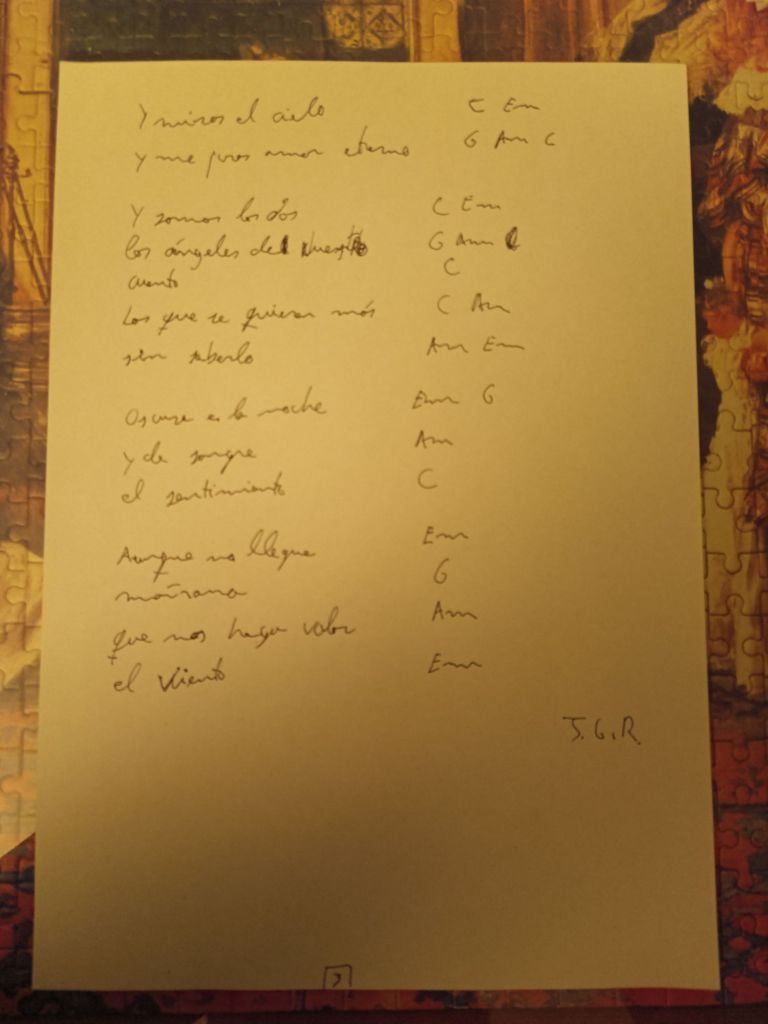 Y miras el cielo C Em
y me juras amor eterno G Am C
Y somos los dos C Em
los ángeles del nuestro G Am
cuento C
Los que se quieren más C Am
sin saberlo Am Em
Oscura es la noche Em G
y de sangre Am
el sentimiento C
Aunque no llegue Em
mañana G
que nos haga volar Am
el viento Em
J.G.R.